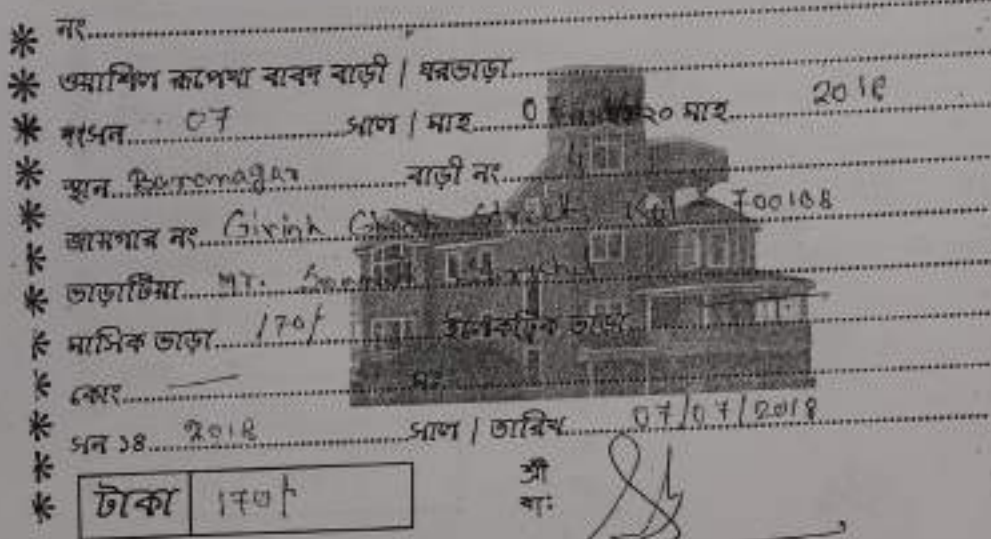 নং
ওয়াশিল রূপেয়া বাবদ বাড়ী / ঘরভাড়া
07 সাল / মাহ 0 ২০ মাহ 2018
স্থান Baronagar বাড়ী নং
জায়গার নং Girish Ghosh Street, Kol 700108
ভাড়াটিয়া MT.
মাসিক ভাড়া 170/- ইলেকট্রিক ভাড়া
কোং — নং
সন ১৪ 2018 সাল / তারিখ 07/07/2018
টাকা 170/- শ্রী
বাঃ